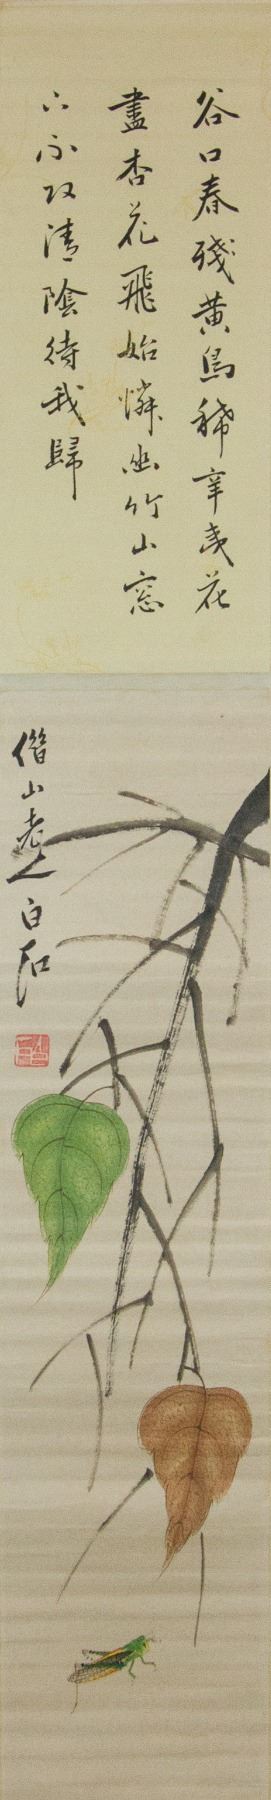 谷口春殘黃鳥稀辛夷花
盡杏花飛始憐幽竹山窓
下不改清陰待我歸
借山老人白石